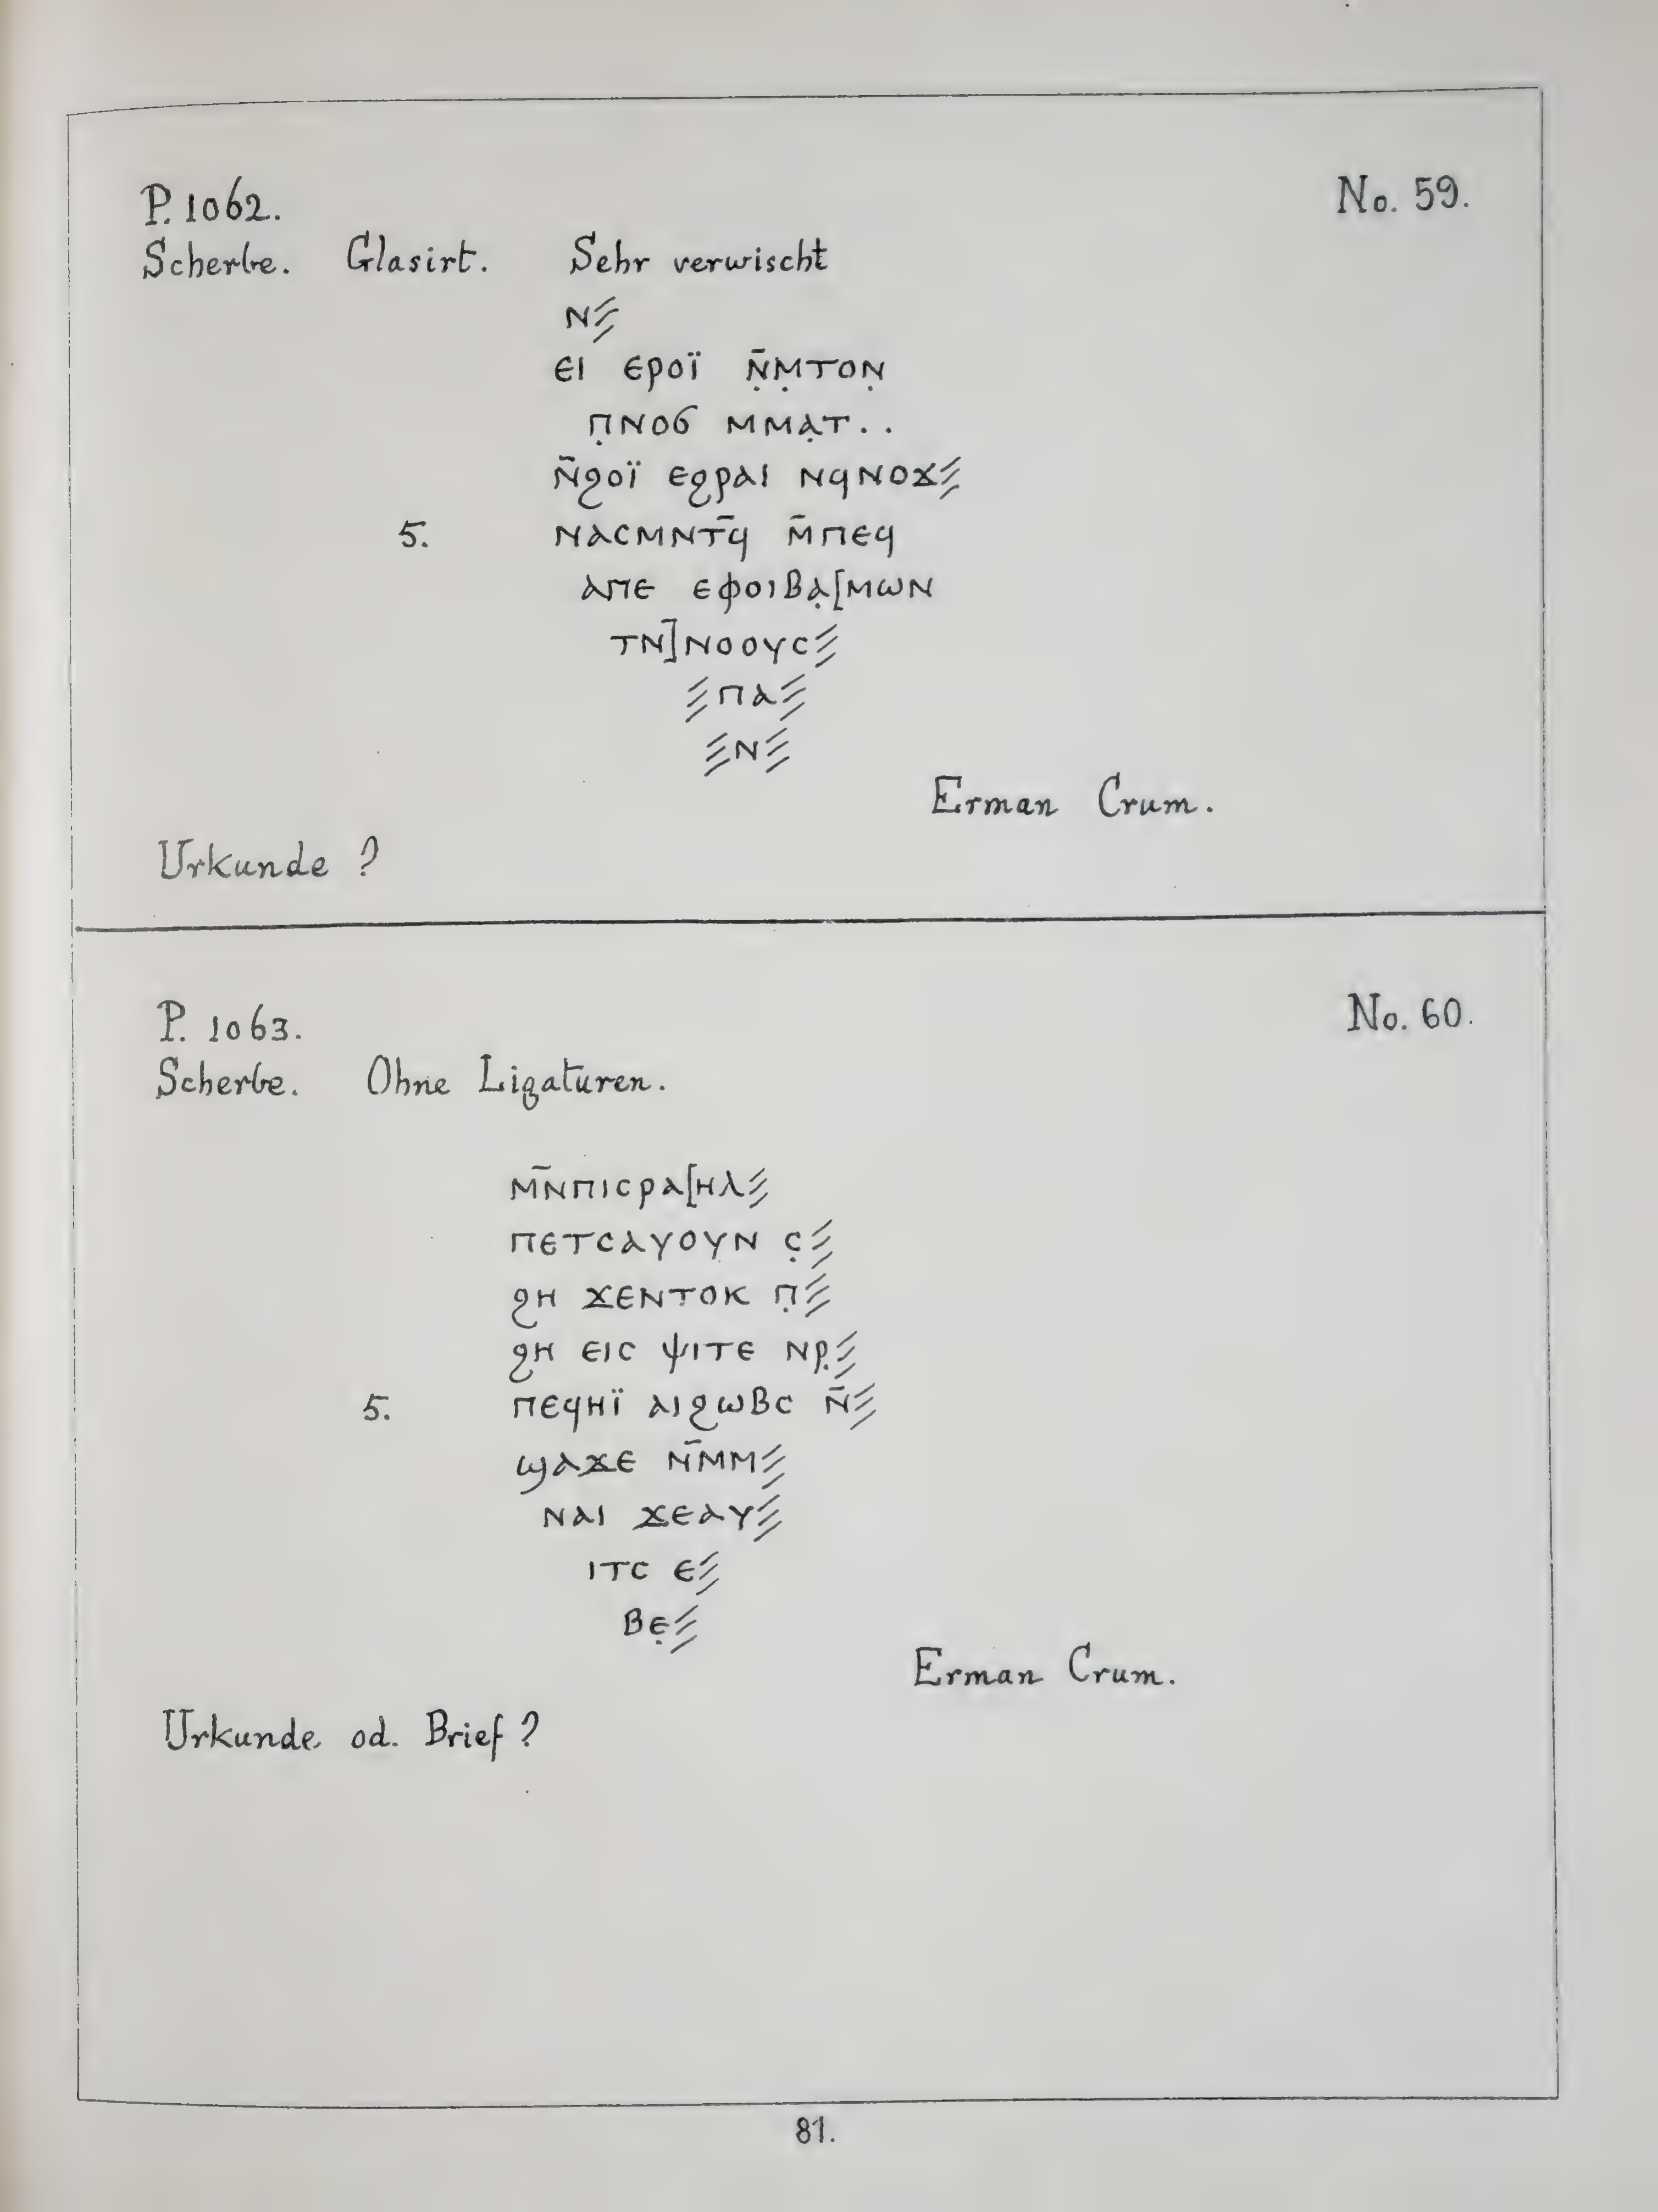 P. 1062.
No. 59.
Scherbe. Glasirt. Sehr verwischt
ⲛ⳼
ⲉⲓ ⲉⲣⲟⲓ̈ ⲛ̣̄ⲙ̣ⲧⲟⲛ̣
ⲡ̣ⲛⲟϭ ⲙⲙⲁ̣ⲧ..
ⲛ̄ϩⲟⲓ̈ ⲉϩⲣⲁⲓ ⲛϥⲛⲟϫ⳼
5. ⲛⲁⲥⲙⲛⲧ̄ϥ ⲙ̄ⲡⲉϥ
ⲁⲡⲉ ⲉⲫⲟⲓⲃⲁ̣[ⲙⲱⲛ
ⲧⲛ]ⲛⲟⲟⲩⲥ⳼
⳼ⲡⲁ⳼
⳼ⲛ⳼
Erman Crum.
Urkunde ?
P. 1063.
No. 60.
Scherbe. Ohne Ligaturen.
ⲙⲛ̄ⲡⲓⲥⲣⲁ[ⲏⲗ⳼
ⲡⲉⲧⲥⲁⲩⲟⲩⲛ ⲥ̣⳼
ϩⲏ ϫⲉⲛⲧⲟⲕ ⲡ̣⳼
ϩⲏ ⲉⲓⲥ ⲯⲓⲧⲉ ⲛⲣ̣⳼
5. ⲡⲉϥⲏⲓ̈ ⲁⲓϩⲱⲃⲥ ⲛ̄⳼
ϣⲁϫⲉ ⲛ̄ⲙⲙ⳼
ⲛⲁⲓ ϫⲉⲁⲩ⳼
ⲓⲧⲥ ⲉ⳼
ⲃⲉ̣⳼
Erman Crum.
Urkunde od. Brief ?
81.